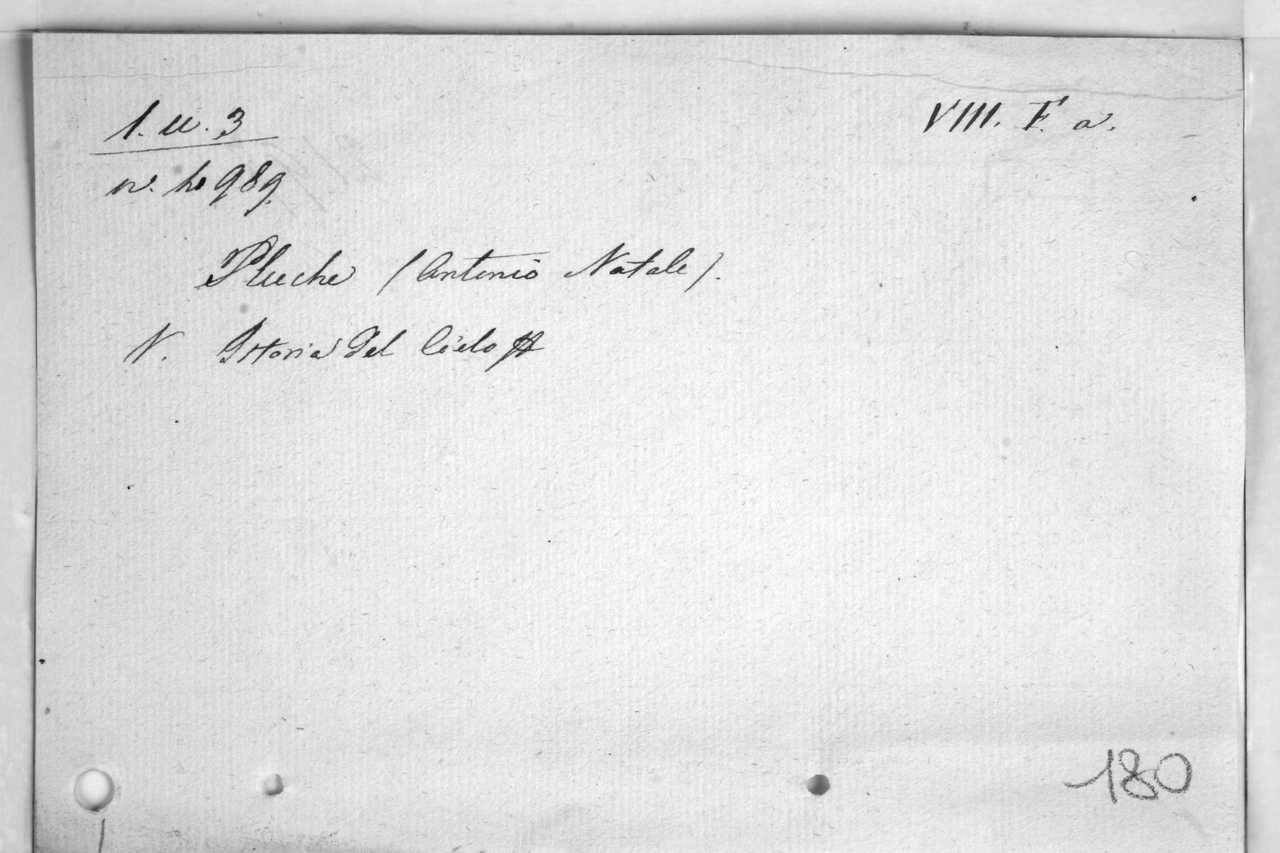 1. u. 3
VIII. F. a.
n. ho 989.
Pluche (Antonio Natale).
N. Istoria del Cielo
180